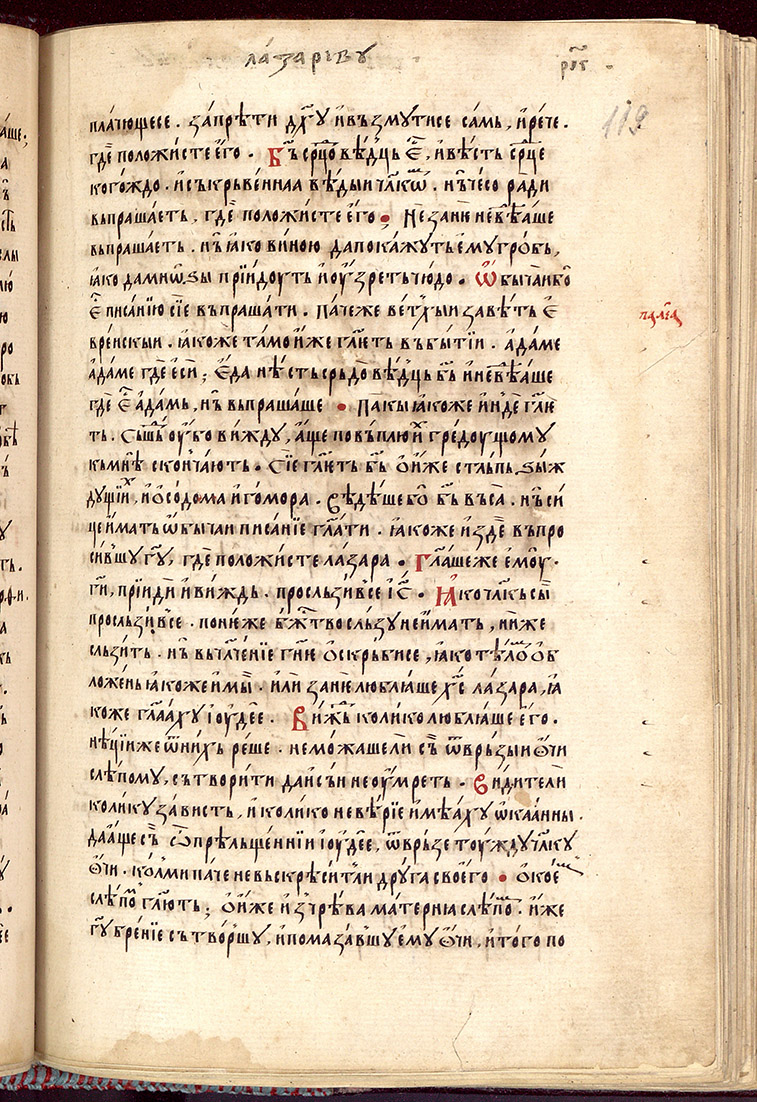 лазаріву
рѳ҃і
119
плачющесе . запрѣти дх҃у и възмутисе самь, и рече .
где положисте его . Бъ ср҃цовѣдць е҃, и вѣсть ср҃це
когождо . и съкрьвеннаа вѣдыи чл҃кѡⷨ . нъ чесо ради
выпрашаеть, где положисте его . Не занѥ не вѣѣаше
выпрашаеть . нъ ꙗко виною да покажуть ему гробь,
ꙗко да мнѡꙁы прїидоуть и оузреть чюдо . Ѡбычаи бо҃
е҃ писанїю сїе въпрашати . паче же ветⷯыи завѣть е
палеа
врейскыи . ꙗкоже тамо иже гл҃еть въ бытїи . адаме
адаме где еси ; еда нѣсть срьдовѣдць бъ҃ и не вѣѣаше
где е҃ адамь, нъ выпрашаше . Пакы ꙗкоже инде гл҃ю
ть. Сьшⷣъ оубо вижду, аще по въплю иⷯ гредоущому
къ мнѣ скончають . Сїе гл҃еть бъ҃ о иже стльпь ꙁыж
дущїиⷯ, и о содома и гомора . Вѣдѣше бо҃ бъ҃ въса . нъ си
це имать ѡбычаи писанїе гл҃ати . ꙗкоже и зде въпро
сившу гу҃, где положисте лазара . Гл҃аше же емоу .
ги҃, прїиди и виждь . прослъзивсе іс҃ . Ꙗко чл҃къ сы
прослъзивсе . понеже бж҃тво слъзу не имать, ниже
слъзить . нъ вычл҃ченїе гн҃ю оскрьбисе, ꙗко тѣлѡⷨ об
ложень ꙗкоже и мы . или занѥ люблꙗше хс҃ лазара, ꙗ
коже гл҃ааху іоудее . Вижⷣь колико люблꙗше его .
нѣцїи же ѿ нихъ рѣше . не можаше ли съ҃ ѿврьзыи очи
слѣпому, сътворити да и съи не оумреть . Видите ли
колику зависть, и колико невѣрїе имѣаху ѡкаанны .
да аще съ҃ ѡ прѣльщеннїи іоудее, ѿврьзе тоужду чл҃ку
очи . колми паче не выскрѣси тли друга своего . о коеⷨ
слѣпоⷨ гл҃ють ; о иже из чрѣва матерна слѣпоⷨ . иже
гу҃ бренїе сътворшу, и помазавшу ему очи, и того по